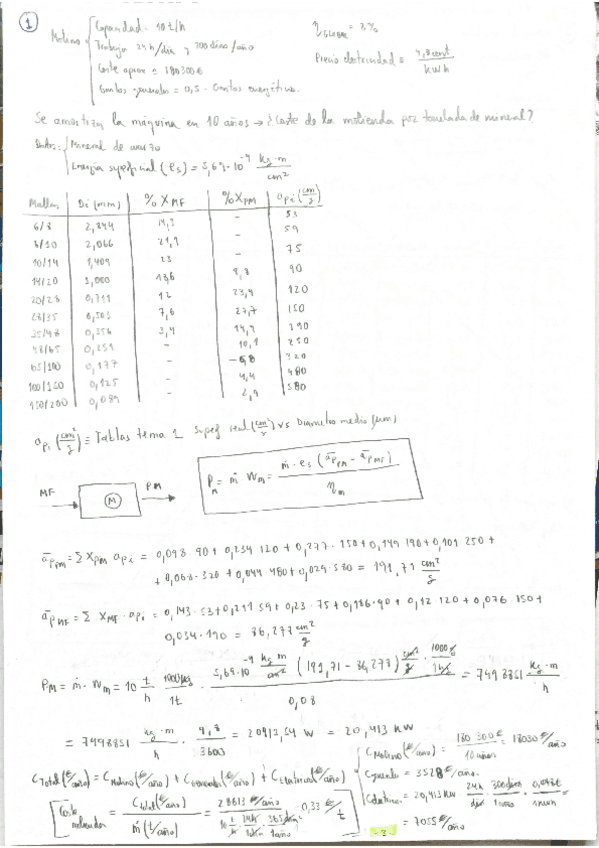 1
Molino { Capacidad: 10 t/h
Trabajo 24 h/día y 300 días/año
Coste aprox = 180300 €
Gastos generales = 0,5 · Gastos energéticos.
η = 8%
Precio electricidad = 4,8 cent / kWh
Se amortiza la máquina en 10 años → ¿Coste de la molienda por tonelada de mineral?
Datos: { Mineral de cuarzo
Energía superficial (es) = 5,69·10⁻⁴ kg·m / cm²
Mallas | Di (mm) | % XMF | % XPM | api (cm²/g)
6/8 2,844 14,3 - 53
8/10 2,066 21,1 - 59
10/14 1,409 23 - 75
14/20 1,000 18,6 9,8 90
20/28 0,711 12 23,4 120
28/35 0,503 7,6 27,7 150
35/48 0,356 3,4 14,9 190
48/65 0,259 - 10,1 250
65/100 0,177 - 6,8 320
100/150 0,125 - 4,4 480
150/200 0,089 - 2,9 580
api (cm²/g) ≡ Tablas tema 1 Superf real (cm²/g) vs Diametro medio (mm)
MF → M → PM
Pm = ṁ Wm = ṁ · es (āpPM - āpMF) / ηm
āpPM = Σ XPM api = 0,098 · 90 + 0,234 · 120 + 0,277 · 150 + 0,149 · 190 + 0,101 · 250 +
+ 0,068 · 320 + 0,044 · 480 + 0,029 · 580 = 191,71 cm²/g
āpMF = Σ XMF · api = 0,143 · 53 + 0,211 · 59 + 0,23 · 75 + 0,186 · 90 + 0,12 · 120 + 0,076 · 150 +
0,034 · 190 = 86,277 cm²/g
PM = ṁ · Wm = 10 t/h · 1000 kg/1t · 5,69·10⁻⁴ kg·m/cm² (191,71 - 86,277) cm²/g · 1000 g/1 kg / 0,08 = 7498851 kg·m/h
= 7498851 kg·m/h · 9,8/3600 = 20413,54 W = 20,413 kW
CTotal (€/año) = CMolino (€/año) + CGenerales (€/año) + CEléctricos (€/año)
CMolino (€/año) = 180 300 € / 10 años = 18030 €/año
CGenerales = 3528 €/año.
CEléctrico = 20,413 kW · 24h/día · 300 días/1 año · 0,048 €/1 kWh =
= 7055 €/año
Coste molienda = CTotal (€/año) / ṁ (t/año) = 28613 €/año / 10 t/h · 24h/1día · 365 días/1año = 0,33 €/t
-3-